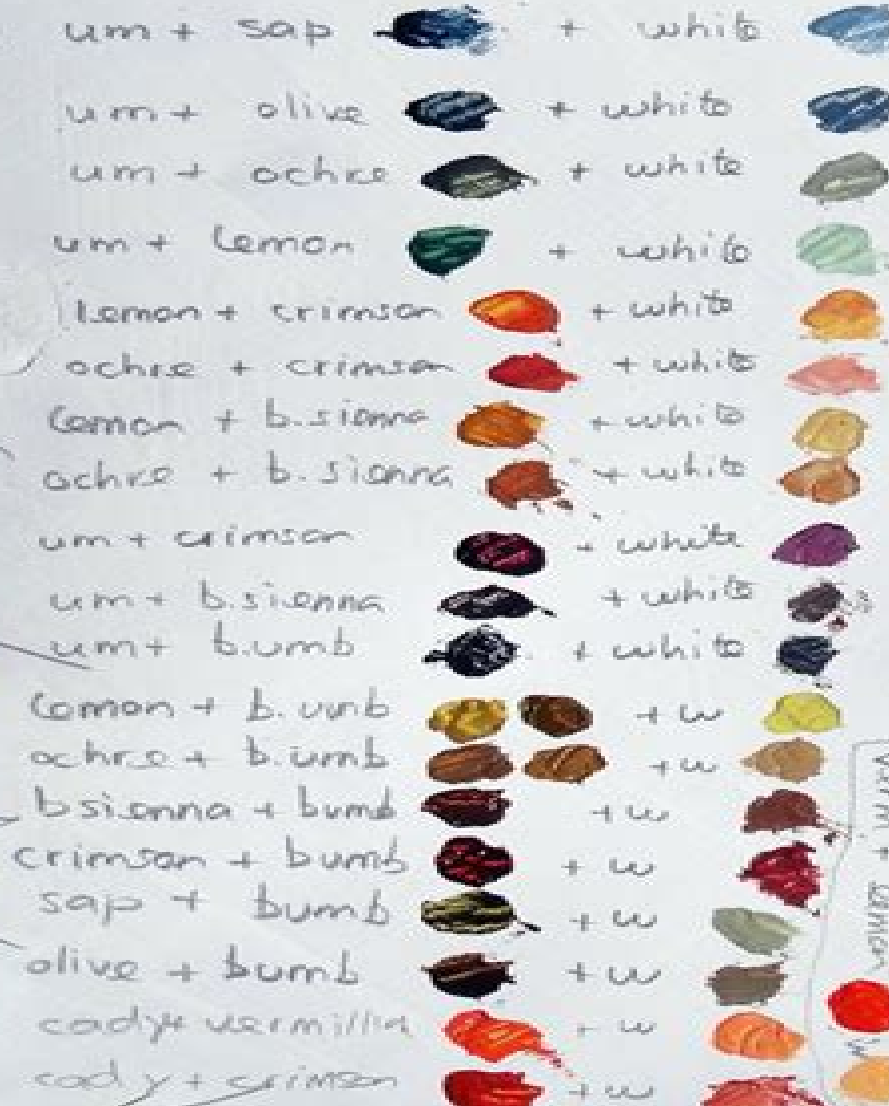 um + sap + white
um + olive + white
um + ochre + white
um + lemon + white
lemon + crimson + white
ochre + crimson + white
lemon + b.sienna + white
ochre + b.sienna + white
um + crimson + white
um + b.sienna + white
um + b.umb + white
lemon + b.umb + w
ochre + b.umb + w
bsienna + bumb + w
crimson + bumb + w
sap + bumb + w
olive + bumb + w
cady + + w
cad y + crimson + w
+ lemon